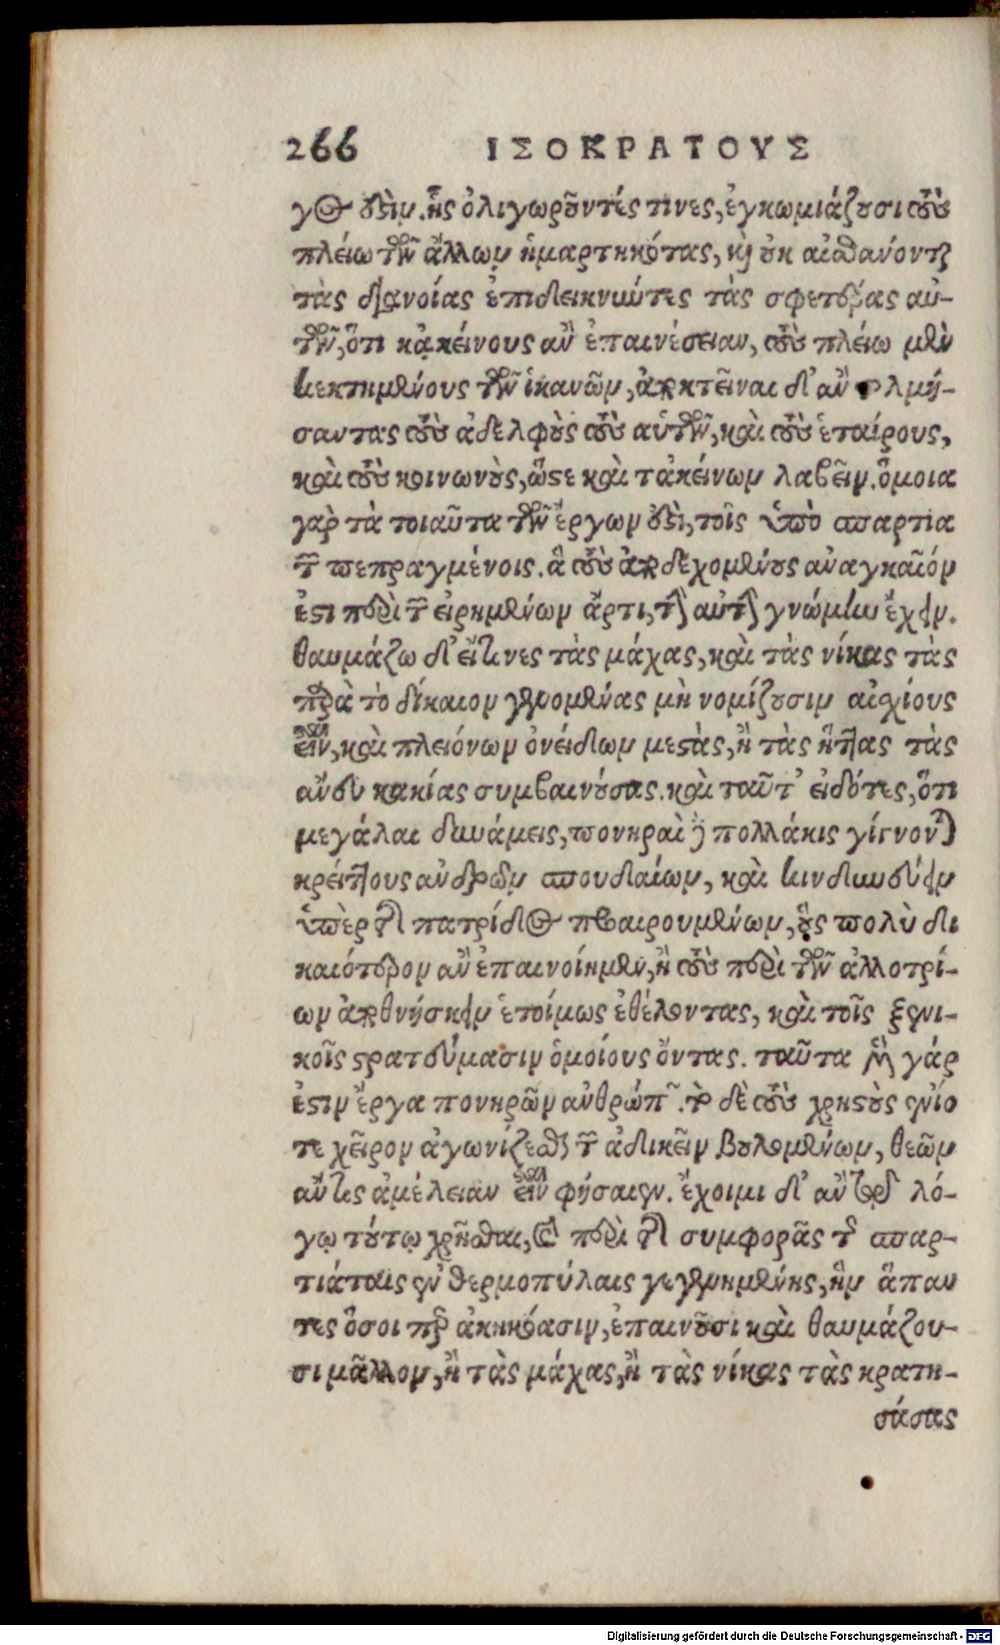 266 ΙΣΟΚΡΑΤΟΥΣ
γος ἐστιν. ἧς ὀλιγωροῦντές τινες, ἐγκωμιάζουσι τοὺς
πλείω τῶν ἄλλων ἡμαρτηκότας, καὶ οὐκ αἰσθάνονται
τὰς διανοίας ἐπιδεικνύντες τὰς σφετέρας αὐ-
τῶν, ὅτι κἀκείνους ἂν ἐπαινέσειαν, τοὺς πλείω μὲν
κεκτημένους τῶν ἱκανῶν, ἀποκτεῖναι δ' ἂν τολμή-
σαντας τοὺς ἀδελφοὺς τοὺς αὑτῶν, καὶ τοὺς ἑταίρους,
καὶ τοὺς κοινωνοὺς, ὥστε καὶ τἀκείνων λαβεῖν. ὅμοια
γὰρ τὰ τοιαῦτα τῶν ἔργων ἐστὶ, τοῖς ὑπὸ σπαρτια
τῶν πεπραγμένοις. ἃ τοὺς ἀποδεχομένους ἀναγκαῖόν
ἐστι περὶ τῶν εἰρημένων ἄρτι, τὴν αὐτὴν γνώμην ἔχειν.
θαυμάζω δ' εἴ τινες τὰς μάχας, καὶ τὰς νίκας τὰς
παρὰ τὸ δίκαιον γενομένας μὴ νομίζουσιν αἰσχίους
εἶναι, καὶ πλειόνων ὀνείδων μεστὰς, ἢ τὰς ἥττας τὰς
ἄνευ κακίας συμβαινούσας. καὶ ταῦτ' εἰδότες, ὅτι
μεγάλαι δυνάμεις, πονηραὶ δὲ πολλάκις γίγνονται
κρείττους ἀνδρῶν σπουδαίων, καὶ κινδυνεύειν
ὑπὲρ τῆς πατρίδος προαιρουμένων, οὓς πολὺ δι
καιότερον ἂν ἐπαινοίημεν, ἢ τοὺς περὶ τῶν ἀλλοτρί-
ων ἀποθνήσκειν ἑτοίμως ἐθέλοντας, καὶ τοῖς ξενι-
κοῖς στρατεύμασιν ὁμοίους ὄντας. ταῦτα μὲν γάρ
ἐστιν ἔργα πονηρῶν ἀνθρώπων. τὸ δὲ τοὺς χρηστοὺς ἐνίο
τε χεῖρον ἀγωνίζεσθαι τῶν ἀδικεῖν βουλομένων, θεῶν
ἄν τις ἀμέλειαν εἶναι φήσαιεν. ἔχοιμι δ' ἂν τῷ λό-
γῳ τούτῳ χρῆσθαι, καὶ περὶ τῆς συμφορᾶς τῆς σπαρ-
τιάταις ἐν θερμοπύλαις γεγενημένης, ἣν ἅπαν
τες ὅσοι περ ἀκηκόασιν, ἐπαινοῦσι καὶ θαυμάζου-
σι μᾶλλον, ἢ τὰς μάχας, ἢ τὰς νίκας τὰς κρατη-
σάσας
Digitalisierung gefördert durch die Deutsche Forschungsgemeinschaft - DFG